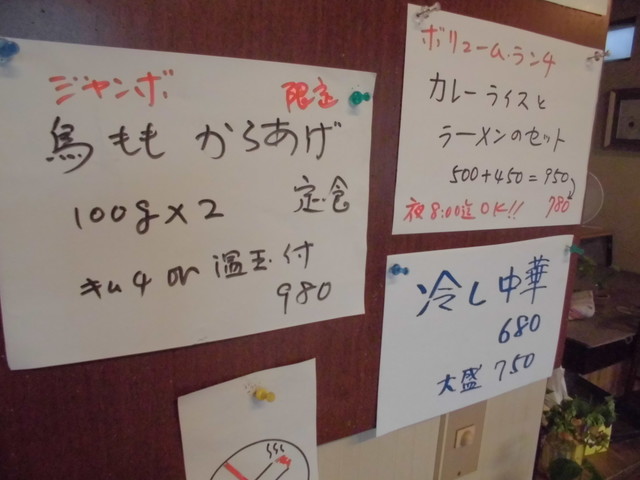 ジャンボ 限定
鳥もも からあげ
100g×2 定食
キムチ or 温玉付
980
ボリューム・ランチ
カレーライスと
ラーメンのセット
500+450=950
夜8:00迄OK!! 780
冷し中華
680
大盛 750